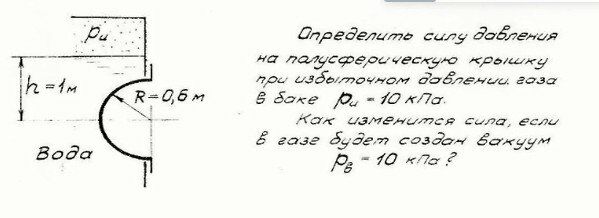 pи
h=1м
R=0,6м
Вода
Определить силу давления
на полусферическую крышку
при избыточном давлении газа
в баке pи = 10 кПа.
Как изменится сила, если
в газе будет создан вакуум
pв = 10 кПа?